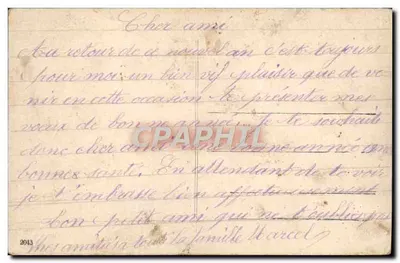 Cher ami
Au retour de ce nouvel an c'est toujours
pour moi un bien vif plaisir que de ve
nir en cette occasion te présenter mes
voeux de bonne année. Je te souhaite
donc cher ami une bonne année une
bonne santé. En attendant de te voir
je t'embrasse bien affectueusement
bon petit ami qui ne t'oublie pas
amitié à toute la famille Marcel
2013
CPAPHIL